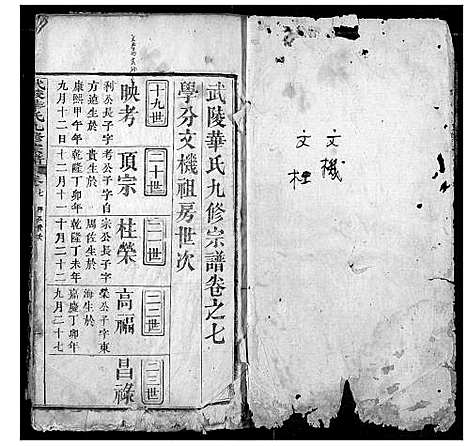 文機
文桂
武陵華氏九修宗譜卷之七
學分文機祖房世次
十九世
二十世
二一世
二二世
二三世
映考
頂宗
桂榮
高福
昌祿
利公長子字
方遠生於
康熙甲午年
九月十二日
考公子字自
貴生於
乾隆丁卯年
十二月十一
宗公長子字
周佐生於
乾隆丁未年
十月二十二
榮公子字東
海生於
嘉慶丁卯年
九月二十七